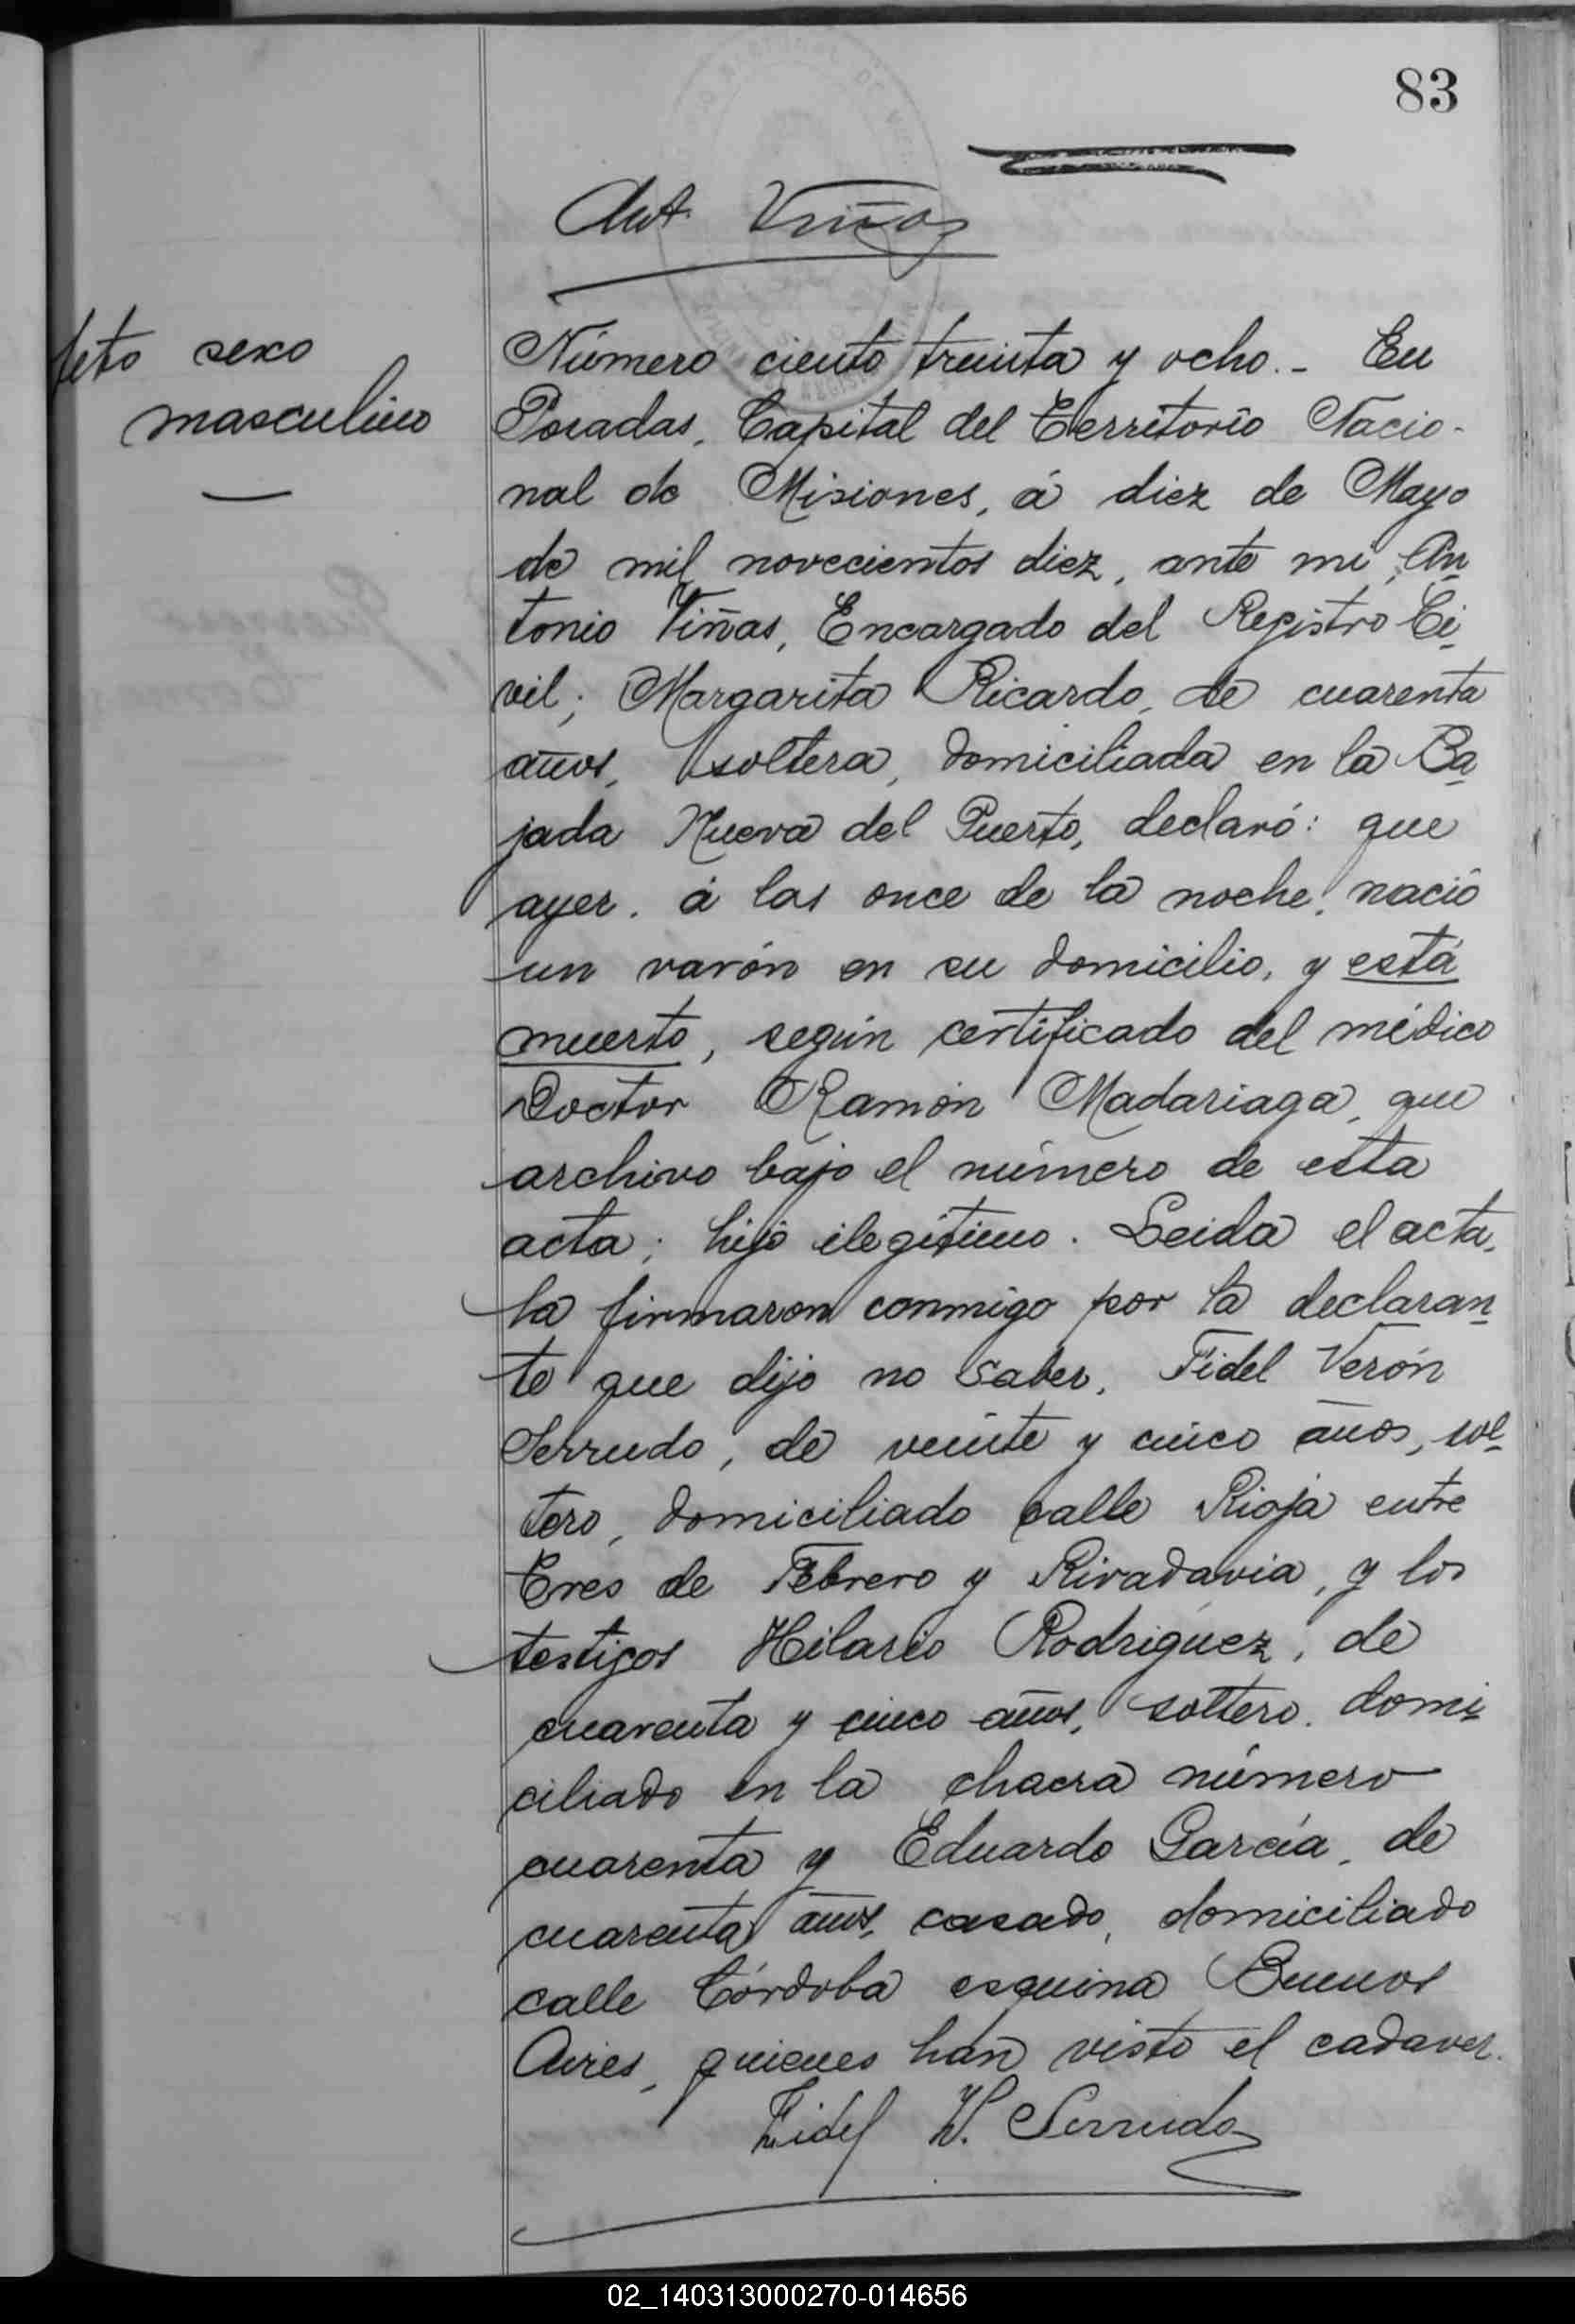 83
Ant. Viñas
feto sexo
masculino
Número ciento treinta y ocho.- En
Posadas, Capital del Territorio Nacio-
nal de Misiones, á diez de Mayo
de mil novecientos diez, ante mi, An
tonio Viñas, Encargado del Registro Ci
vil; Margarita Ricardo, de cuarenta
años, soltera, domiciliada en la Ba
jada Nueva del Puerto, declaró: que
ayer, á las once de la noche, nació
un varón en su domicilio, y está
muerto, según certificado del médico
Doctor Ramón Madariaga, que
archivo bajo el número de esta
acta; hijo ilegítimo. Leida el acta,
la firmaron conmigo por la declaran
te que dijo no saber, Fidel Verón
Serrudo, de veinte y cinco años, sol
tero, domiciliado calle Rioja entre
Tres de Febrero y Rivadavia, y los
testigos Hilario Rodríguez, de
cuarenta y cinco años, soltero, domi
ciliado en la chacra número
cuarenta y Eduardo García, de
cuarenta años, casado, domiciliado
calle Córdoba esquina Buenos
Aires, quienes han visto el cadaver.
Fidel V. Serrudo
02_140313000270-014656